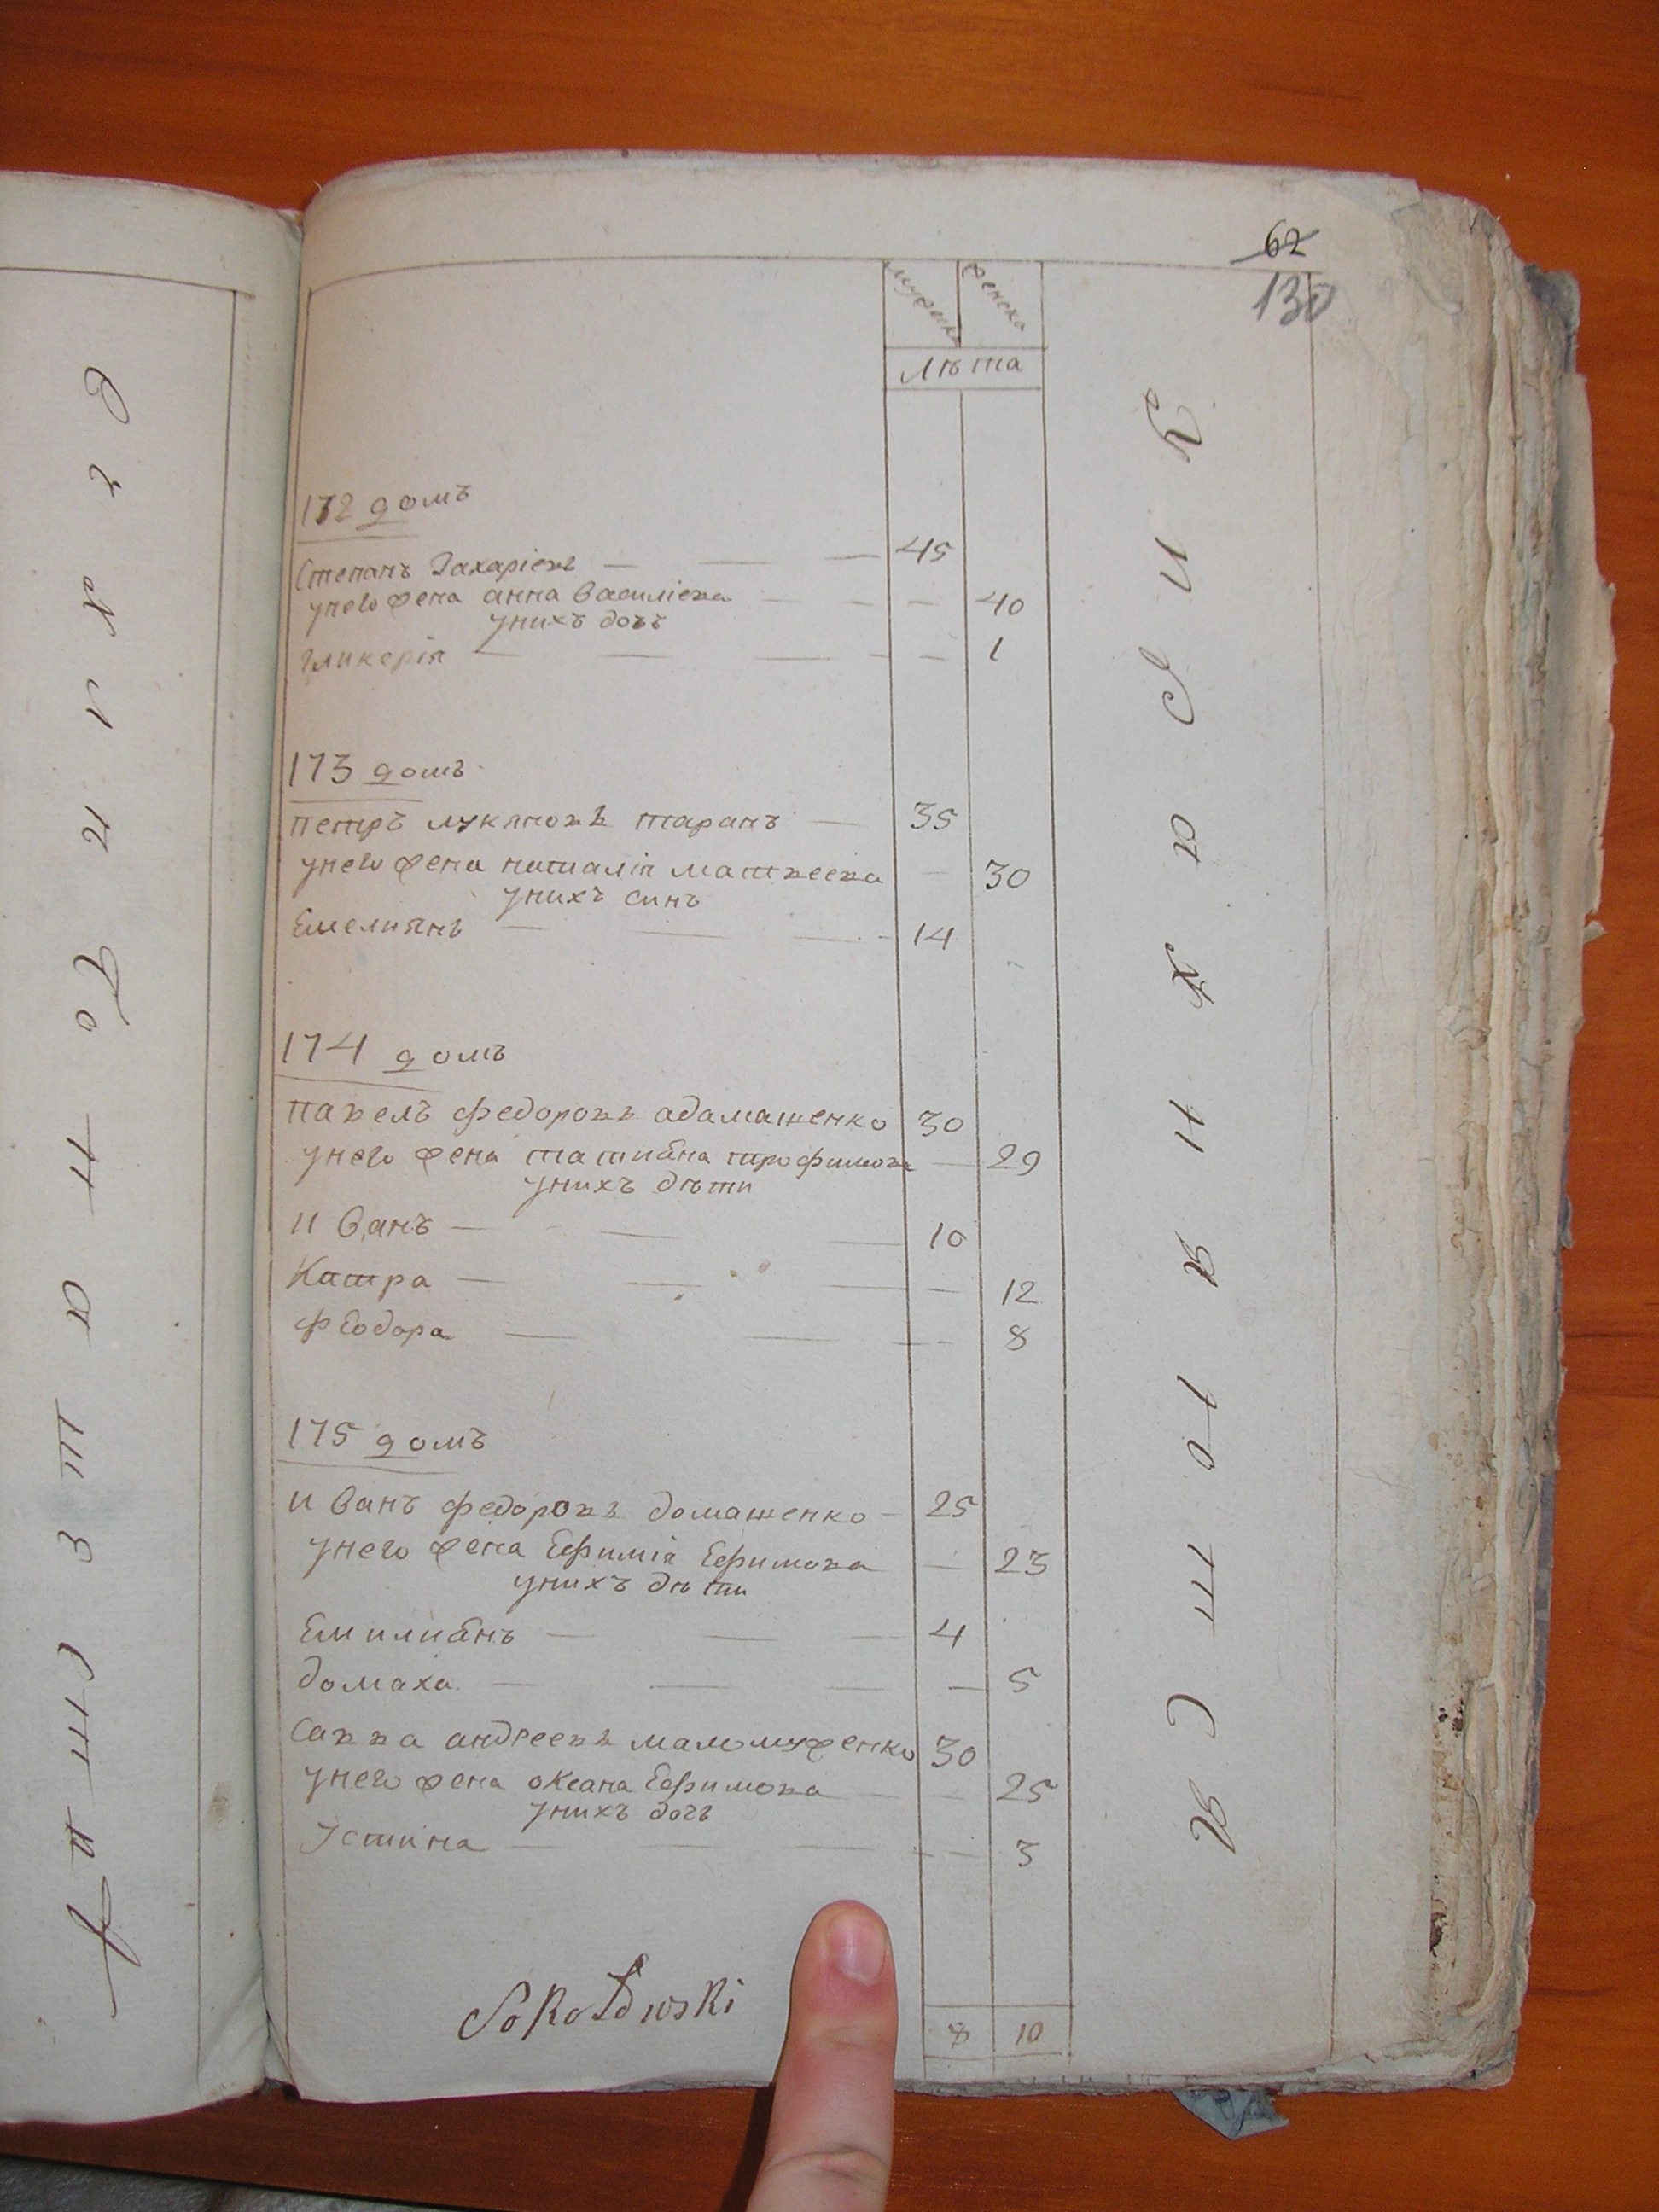 62
130
мужеска женска
Лѣта
172 домъ
Степанъ Захаріевъ 45
унего жена анна Василіева 40
унихъ дочъ
гликерія 1
173 домъ
петръ лукяновъ таранъ 35
унего жена наталія матвеева 30
унихъ синъ
Емелиянъ 14
174 домъ
павелъ федоровъ адамашенко 30
унего жена татиѣна трофимова 29
унихъ дѣти
иванъ 10
Катра 12
феодора 8
175 домъ
иванъ федоровъ домашенко 25
унего жена Ефимія Ефимова 23
унихъ дѣти
Емилиѣнъ 4
домаха 5
савва андреевъ маломуженко 30
унего жена оксана Ефимова 25
унихъ дочъ
Устина 3
Sokołowski
8 10